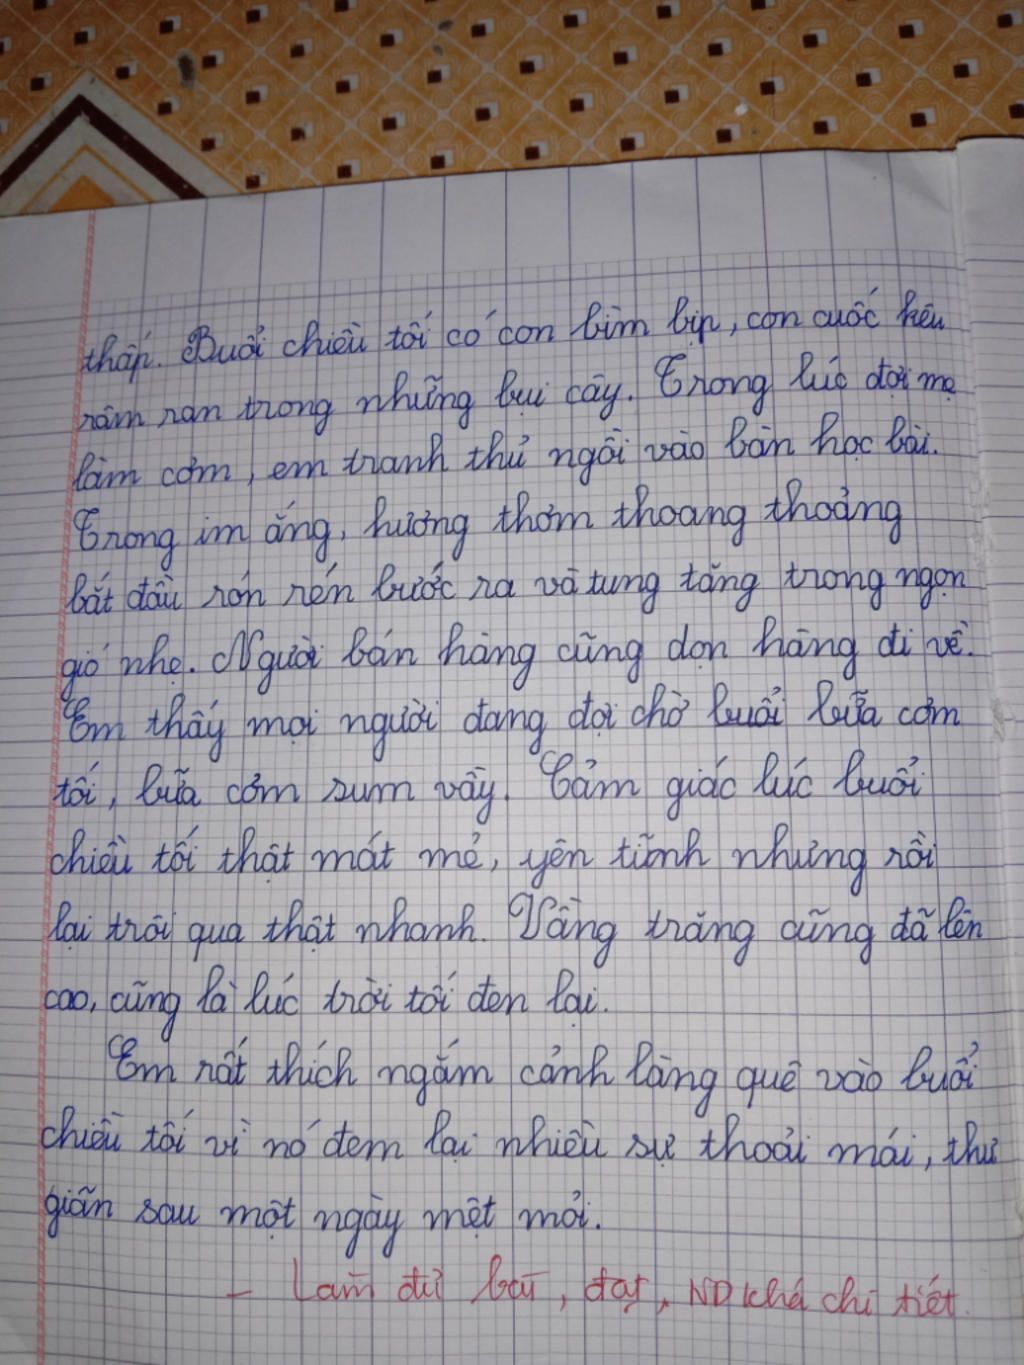 thấp. Buổi chiều tối có con bìm bịp, con cuốc kêu
râm ran trong những bụi cây. Trong lúc đợi mẹ
làm cơm, em tranh thủ ngồi vào bàn học bài.
Trong im ắng, hương thơm thoang thoảng
bắt đầu rón rén bước ra và tung tăng trong ngọn
gió nhẹ. Người bán hàng cũng dọn hàng đi về.
Em thấy mọi người đang đợi chờ buổi bữa cơm
tối, bữa cơm sum vầy. Cảm giác lúc buổi
chiều tối thật mát mẻ, yên tĩnh nhưng rồi
lại trôi qua thật nhanh. Vầng trăng cũng đã lên
cao, cũng là lúc trời tối đen lại.
Em rất thích ngắm cảnh làng quê vào buổi
chiều tối vì nó đem lại nhiều sự thoải mái, thư
giãn sau một ngày mệt mỏi.
- Làm đủ bài, đạt, ND khá chi tiết.